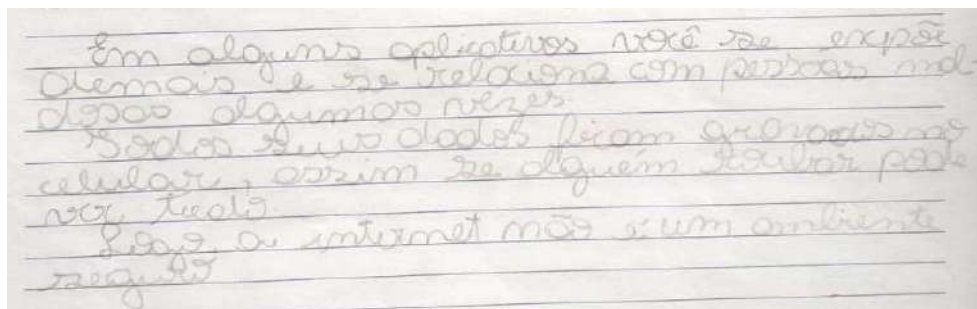 Em alguns aplicativos você se expõe
demais e se relaciona com pessoas mal-
dosas algumas vezes.
Todos seus dados ficam gravados no
celular, assim se alguém roubar pode
ver tudo.
Logo a internet não é um ambiente
seguro